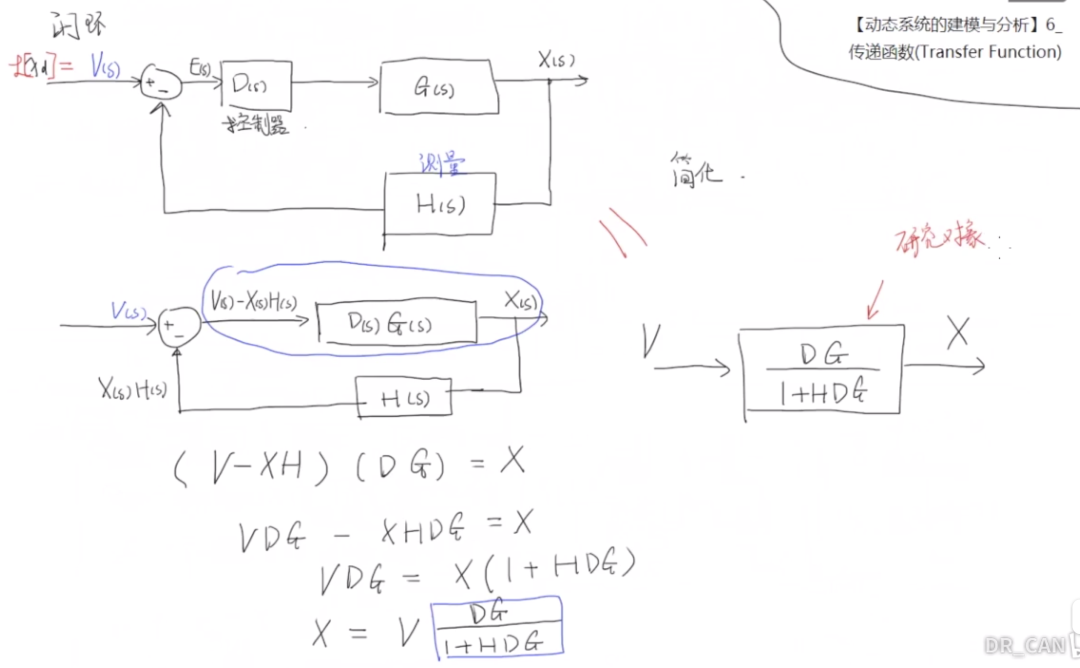 【动态系统的建模与分析】6_
传递函数(Transfer Function)
闭环
ℒ[Xd] = V(s)
+
-
E(s)
D(s)
控制器
G(s)
X(s)
测量
H(s)
简化.
V(s)
+
-
V(s)-X(s)H(s)
D(s) G(s)
X(s)
X(s)H(s)
H(s)
研究对象
V
DG
1+HDG
X
(V-XH)(DG) = X
VDG - XHDG = X
VDG = X(1+HDG)
X = V DG
1+HDG
DR_CAN